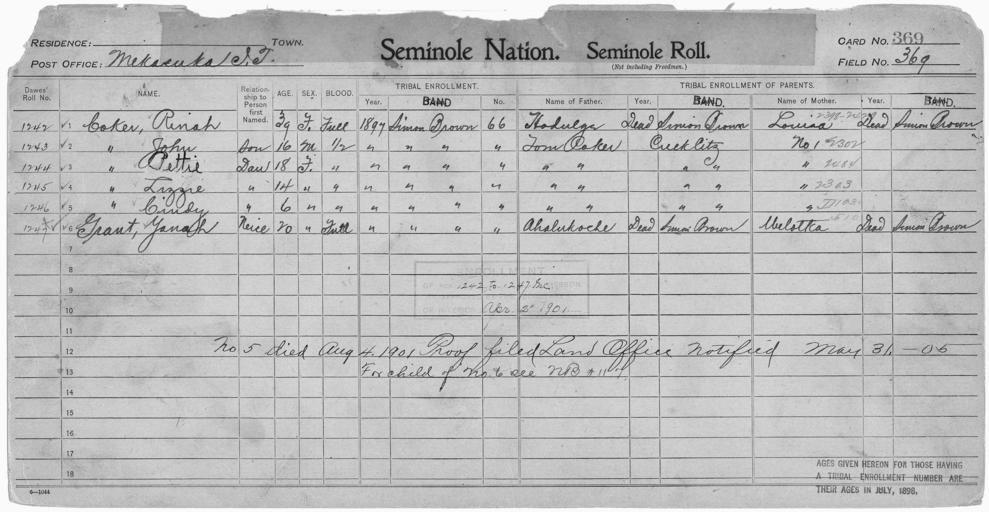 RESIDENCE: TOWN. Seminole Nation. Seminole Roll. CARD NO. 369
POST OFFICE: Mekasuka I.T. (Not including Freedmen.) FIELD NO. 369
Dawes' Roll No. NAME. Relationship to Person first Named. AGE. SEX. BLOOD. TRIBAL ENROLLMENT. TRIBAL ENROLLMENT OF PARENTS.
Year. BAND No. Name of Father. Year. BAND. Name of Mother. Year. BAND.
1242 √ 1 Coker, Rinah 39 F. Full 1897 Simon Brown 66 Dead Simon Brown Louisa Dead Simon Brown
1243 √ 2 " John Son 16 M 1/2 " " " " Tom Coker No 1
1244 √ 3 " Pettie Dau 18 F. " " " " " " " " " "
1245 √ 4 " Lizzie " 14 " " " " " " " " " " "
1246 √ 5 " Cindy " 6 " " " " " " " " " " "
1247 √ 6 Grant, Neice 20 " Full " " " " Ahalukoche Dead Simon Brown Dead Simon Brown
7
8
ENROLLMENT
9 1242 To 1247 Inc.
10 Apr. 2 1901
11
12 No 5 died Aug 4 1901 Proof filed Land Office notified May 31, -05
13 For child of No. 6 see NB #
14
15
16
17
18
AGES GIVEN HEREON FOR THOSE HAVING
A TRIBAL ENROLLMENT NUMBER ARE
THEIR AGES IN JULY, 1898.
6—1044